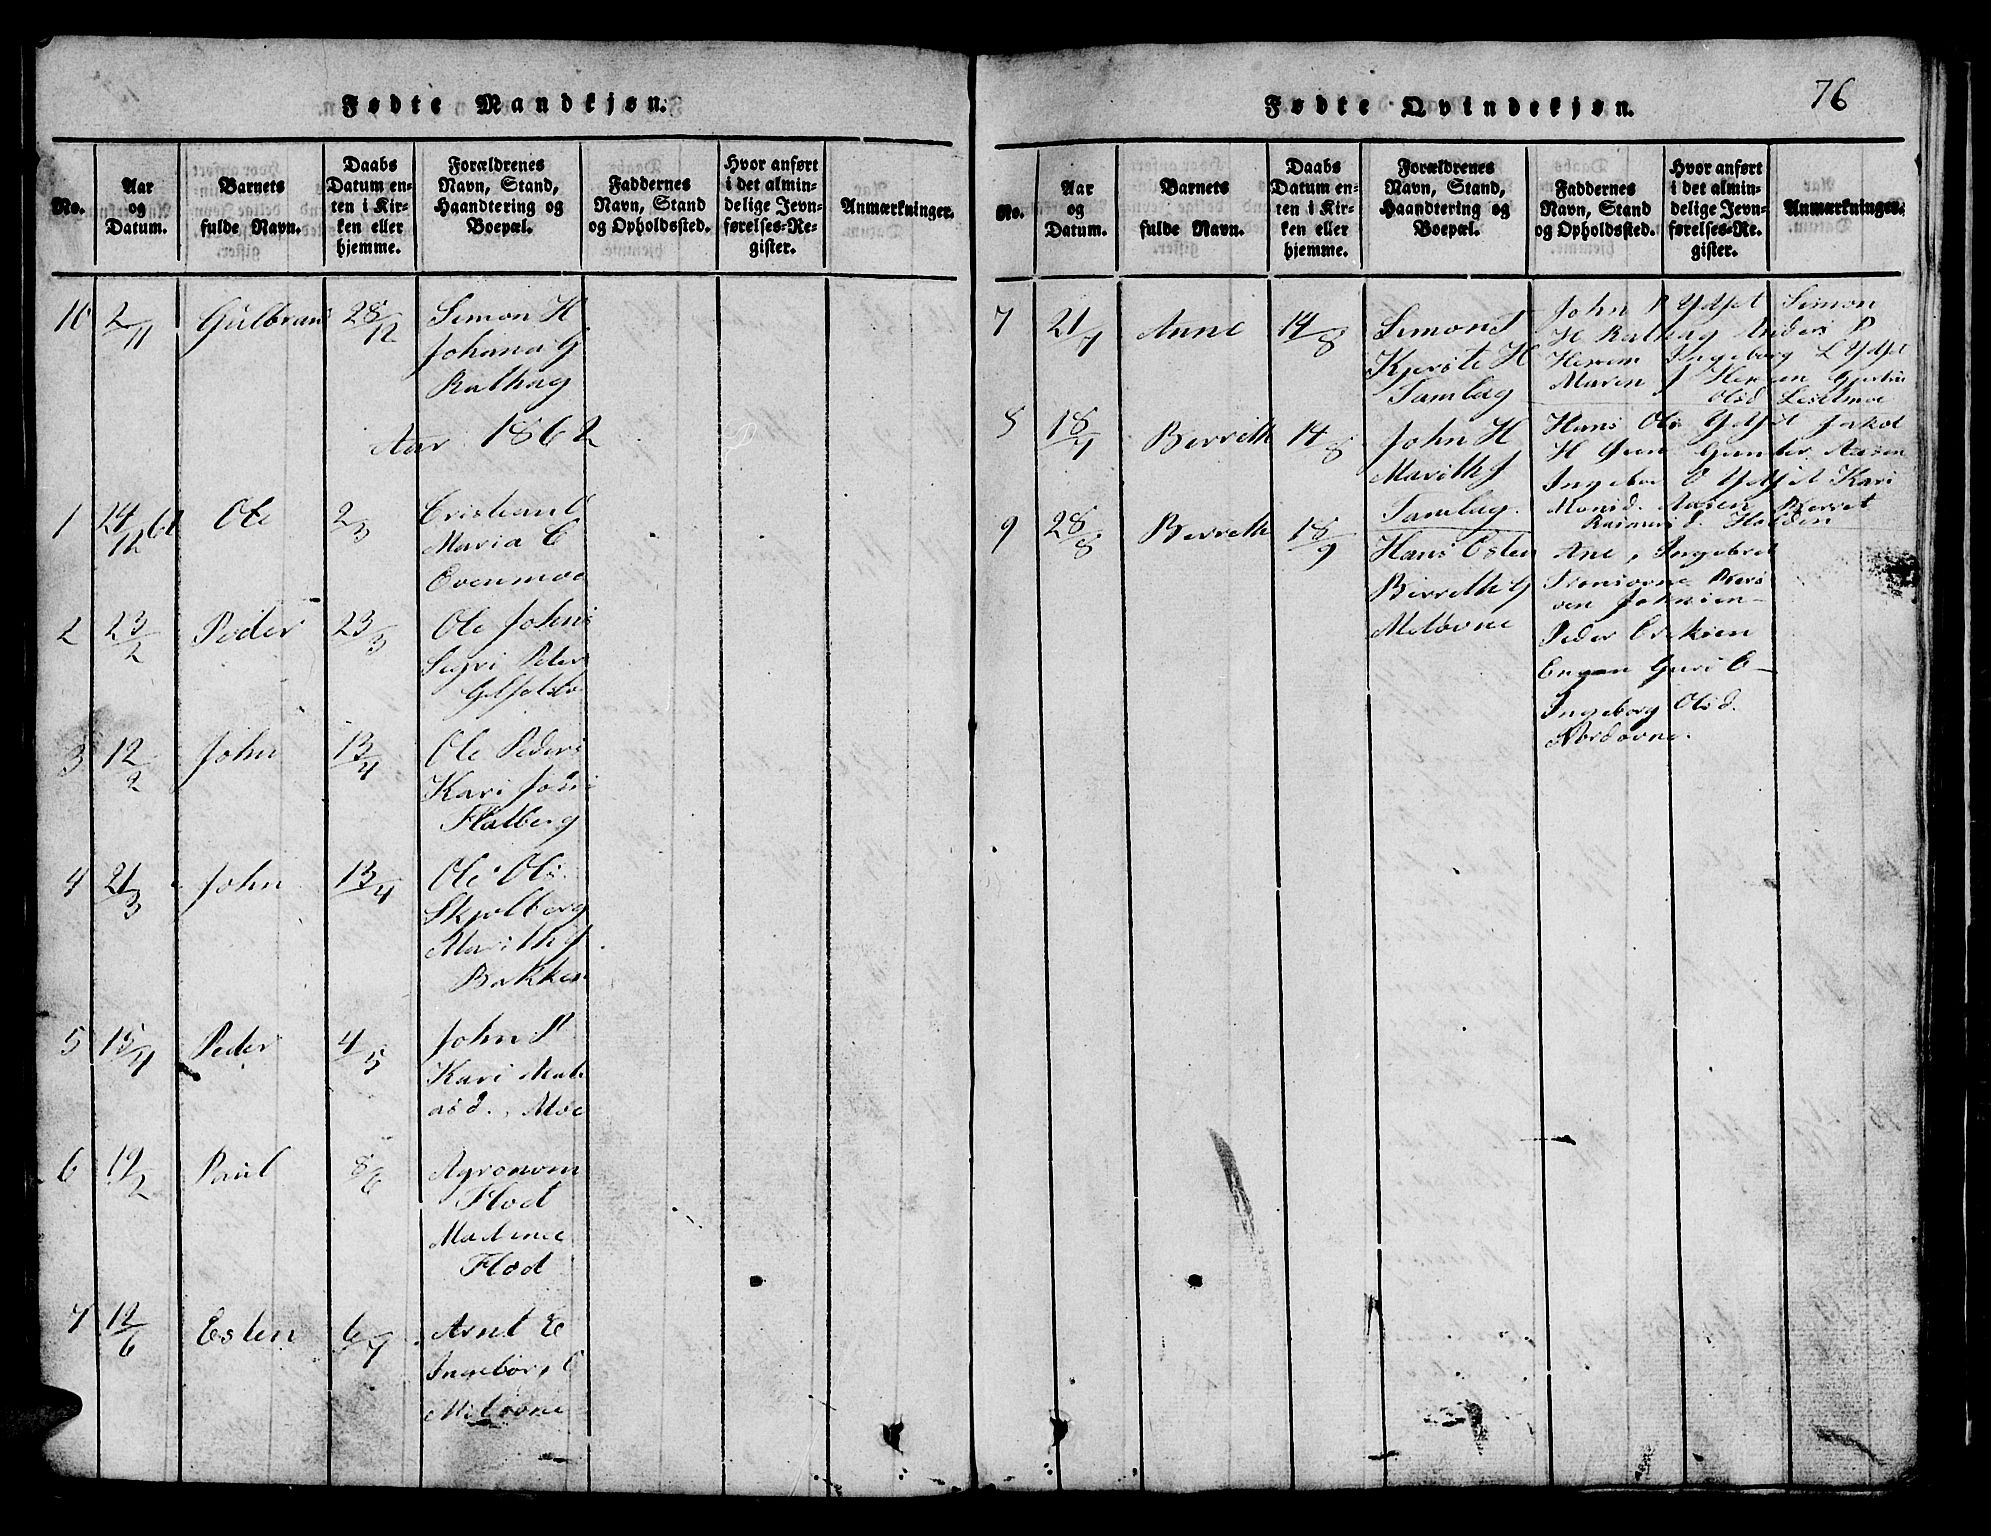 Fødte Mandkjøn.
No.
Aar og Datum.
Barnets fulde Navn.
Daabs Datum enten i Kirken eller hjemme.
Forældrenes Navn, Stand, Haandtering og Boepæl.
Faddernes Navn, Stand og Opholdssted.
Hvor anført i det almindelige Jevnførelses-Register.
Anmærkninger.
10 2/11 Gulbran 28/12 Simon H
Johana G
Ralhag
Aar 1862
1 24/12 61 Ole 2/3 Cristian O
Maria C
Evenmoe
2 23/2 Peder 23/3 Ole Johns
Segri Peders
3 12/2 John 13/4 Ole Peders
Kari Johs
Flatberg
4 21/3 John 13/4 Ole Ols
Skjolberg
Marith J
Bakken
5 15/4 Peder 4/5 John P
Kari Mat
asd. Moe
6 19/2 Paul 8/6 Agronom
Flod
Madame
Flod
7 12/6 Esten 6/7 Arnt E
Ingebor, O
Meløvne
Fødte Qvindekjøn.
76
No.
Aar og Datum.
Barnets fulde Navn.
Daabs Datum enten i Kirken eller hjemme.
Forældrenes Navn, Stand, Haandtering og Boepæl.
Faddernes Navn, Stand og Opholdssted.
Hvor anført i det almindelige Jevnførelses-Register.
Anmærkninger.
7 21/7 Anne 14/8 Simon T
Kjerste H
Tamlag
John P Ydset Simon
H Ralhag Anders P
Herrem Ingeborg L Ydset
Maren J Herrem
8 18/7 Berreth 14/8 John H
Marith J
Tamlag.
Hans Ols Ydset Jakob
H Øien Gunder Aasen
Ingebor O Ydset Kari
Monsd. Aasen Berret
Rasmusd. Halden
9 28/8 Berreth 18/9 Hans Esten
Berreth G
Meløvne
Ane, Ingebret
Johnsen
Peder Eriksen
Engan Guri E
Ingeborg Olsd.
Nordovne.